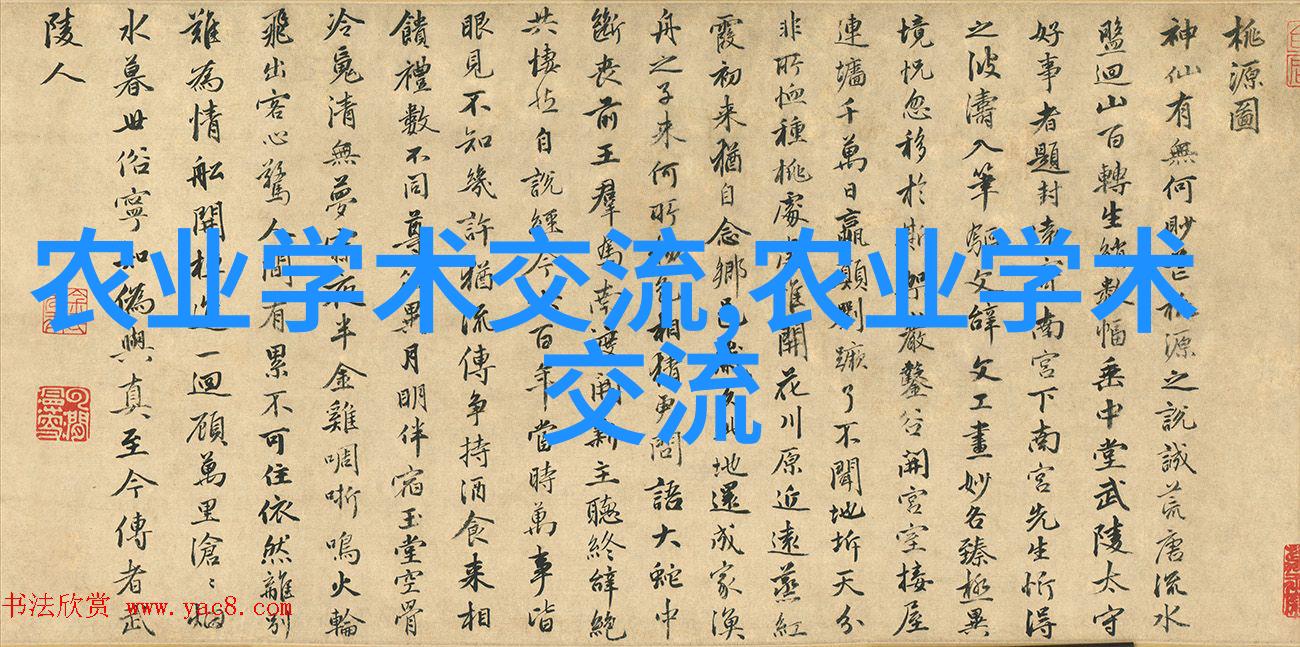 农业学术交流,农业学术
交流
桃源圖
神仙有無何眇芒桃源之說誠荒唐流水
盤迴山百轉生綃數幅垂中堂武陵太守
好事者題封遠寄南宮下南宮先生忻得
之波濤入筆驅文辭文工畫妙各臻極異
境恍忽移於斯架巖鑿谷開宮室接屋
連墻千萬日嬴顛劉蹶了不聞地坼天分
非所恤種桃處處惟開花川原近遠蒸紅
霞初來猶自念鄉邑歲久此地還成家漁
舟之子來何所物色相猜更問語大蛇中
斷喪前王羣馬南渡開新主聽終辭絕
共悽然自說經今六百年當時萬事皆
眼見不知幾許猶流傳爭持酒食來相
饋禮數不同尊俎異月明伴宿玉堂空骨
冷魂清無夢寐夜半金雞啁哳鳴火輪
飛出客心驚人間有累不可住依然離別
難為情船開棹進一迴顧萬里滄〻烟
水暮世俗寧知偽與真至今傳者武
陵人
书法欣赏 www.yac8.com